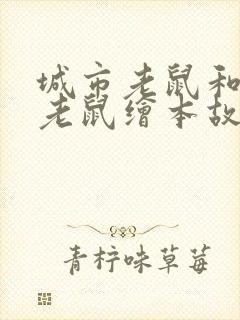 城市老鼠和
老鼠繪本故
青柠味草莓